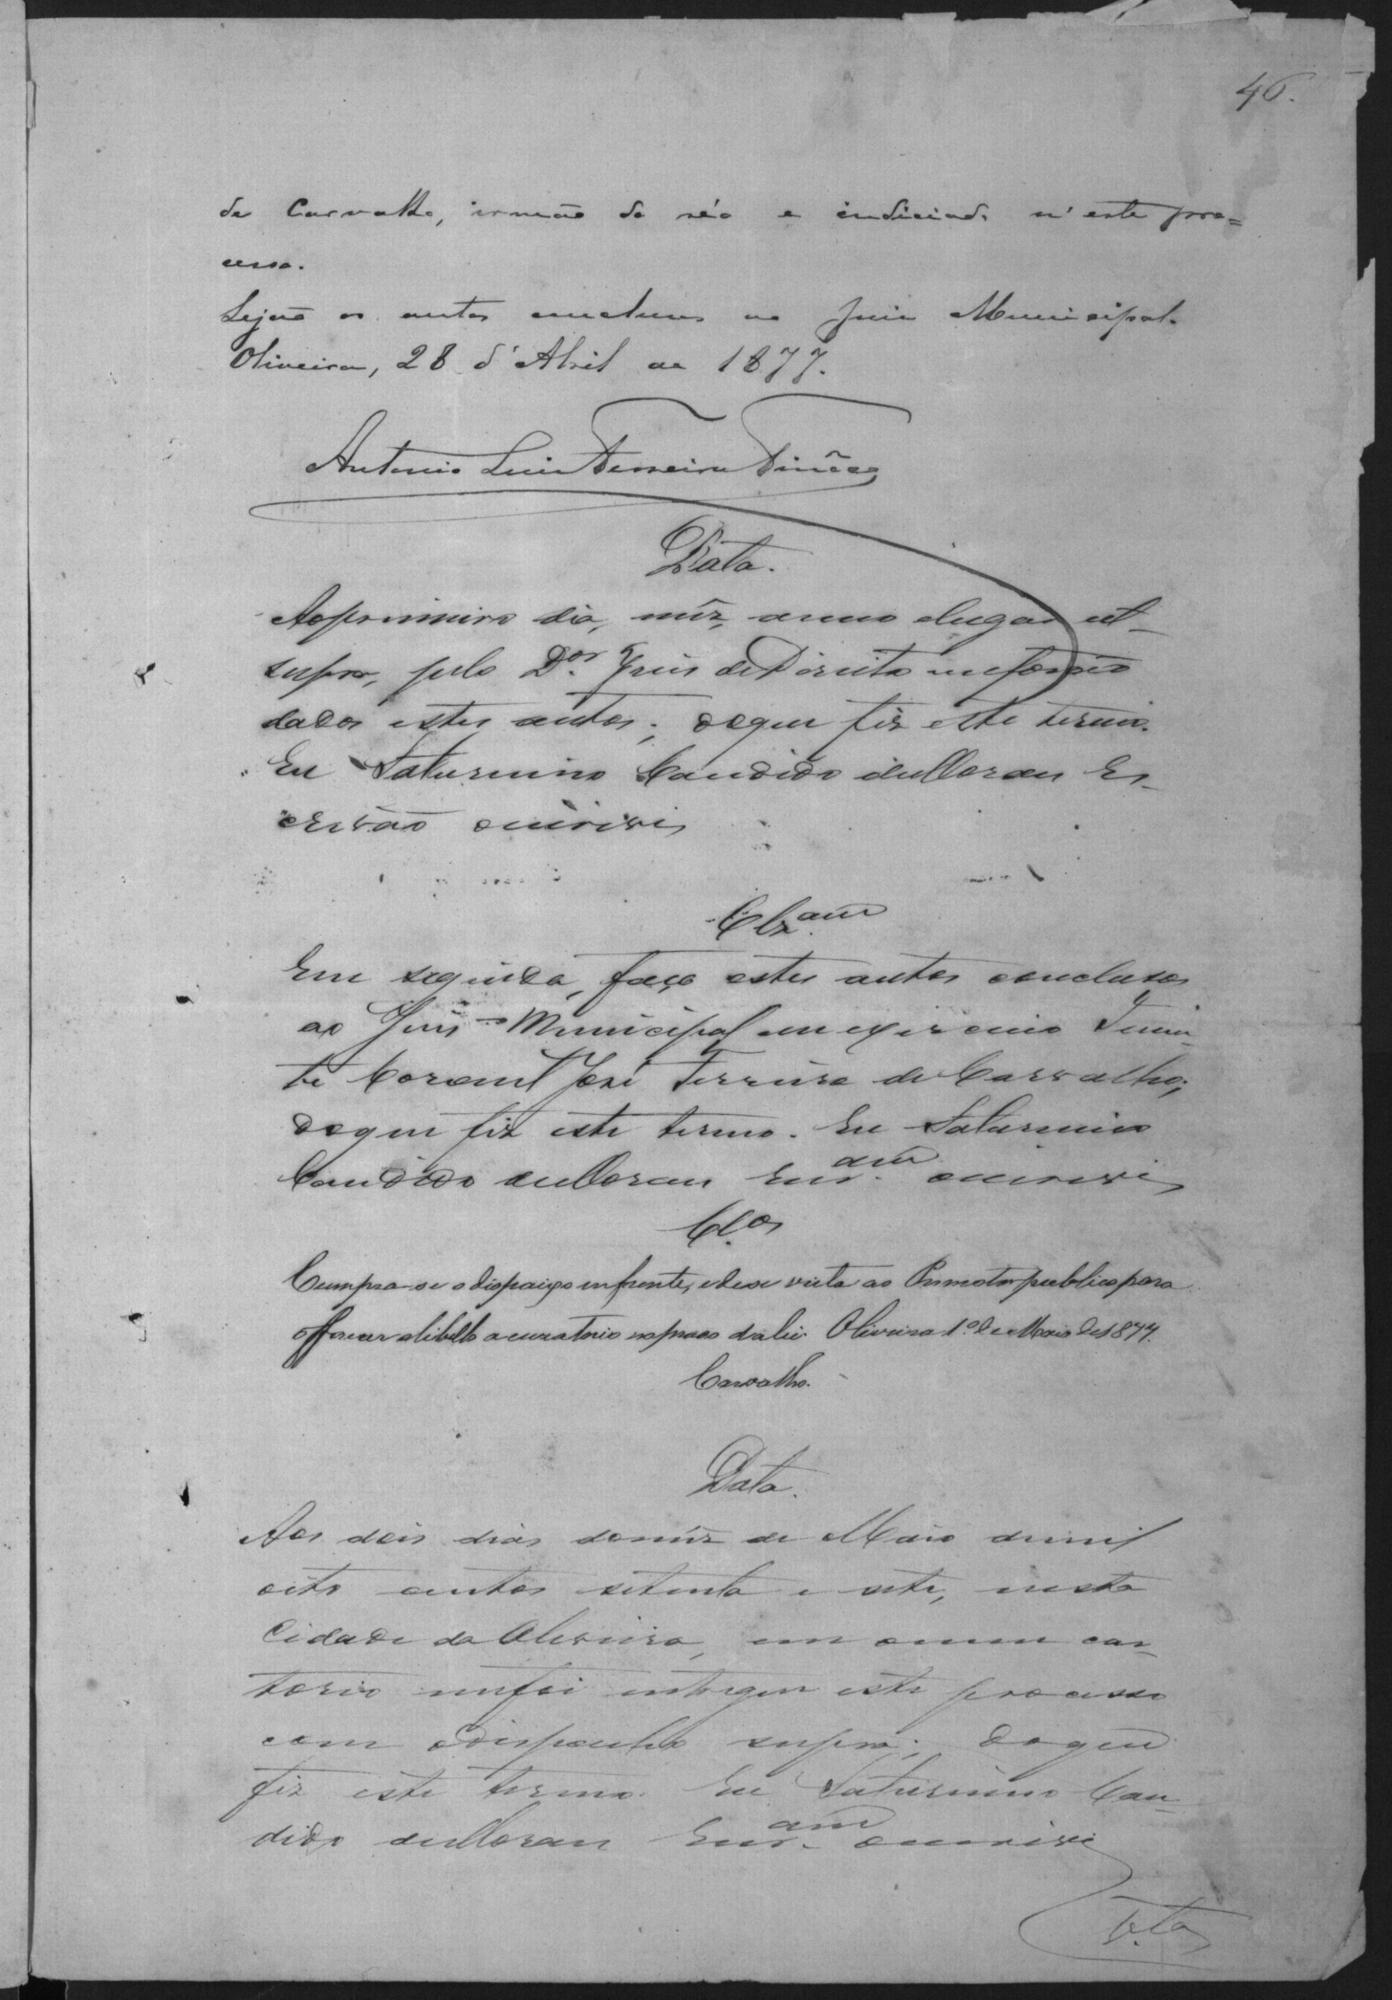 46.
de Carvalho, irmão do réo e indiciado n'este pro=
cesso.
Sejão os autos conclusos ao Juiz Municipal.
Oliveira, 28 d'Abril de 1877.
Antonio Luiz Ferreira Tinôco
Data.
Ao primeiro dia, mêz, anno elugar ut-
supra, pelo D.or Juis de Direito me forão
dados estes autos; doque fiz este termo.
Eu Saturnino Candido de Moraes Es-
crivão oescrevi
Clz.am
Em seguida, faço estes autos conclusos
ao Juis Municipal em exercicio Tenen-
te Coronel José Ferreira de Carvalho;
doque fiz este termo. Eu Saturnino
Candido de Moraes Escr.am oescrevi
Cl.os
Cumpra-se o dispaixo em frente, e dese vista ao Promotor publico para
offerecer o libello acuzatorio no praso da lei. Oliveira 1.o de Maio de 1877.
Carvalho.
Data.
Aos dois dias do mêz de Maio de mil
oito centos setenta e sete, nesta
Cidade da Oliveira, em o meu car-
torio me foi entregue este processo
com o despacho supra; doque
fiz este termo. Eu Saturnino Can-
dido de Moraes Escr.am oescrevi
V.ta